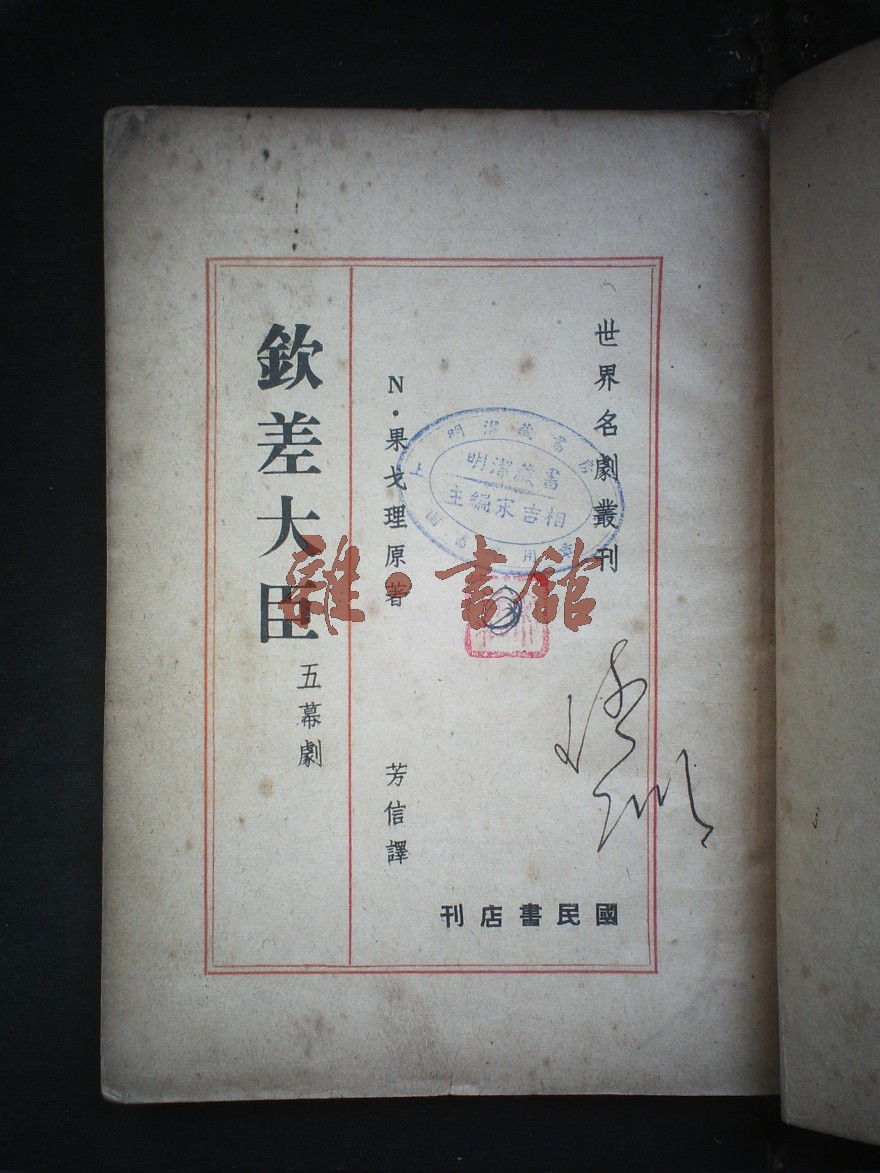 世界名劇叢刊
N·果戈理原著
芳信譯
欽差大臣
五幕劇
國民書店刊
明潔藏書
雜·書館